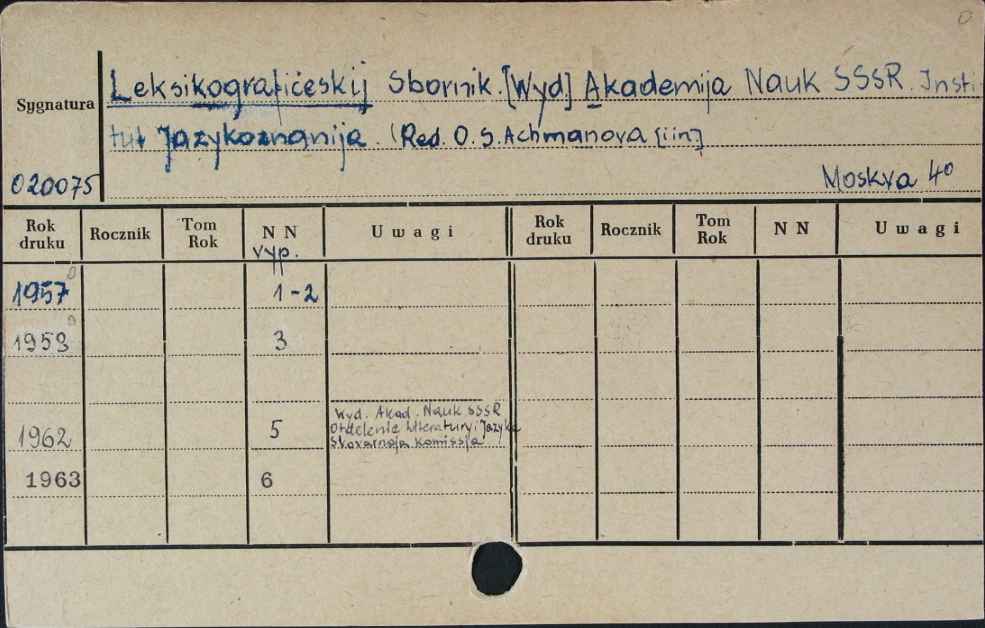 0
Leksikografičeskij Sbornik. [Wyd] Akademija Nauk SSSR. Insti-
Sygnatura
tut Jazykoznanija. (Red. O. S. Achmanova [i in]
020075
Moskva 4⁰
Rok druku Rocznik Tom Rok N N vyp. Uwagi Rok druku Rocznik Tom Rok N N Uwagi
1957 1-2
1958 3
1962 5 Wyd. Akad. Nauk SSSR
Otdelenie literatury i jazyka
Slovarnaja komissija
1963 6